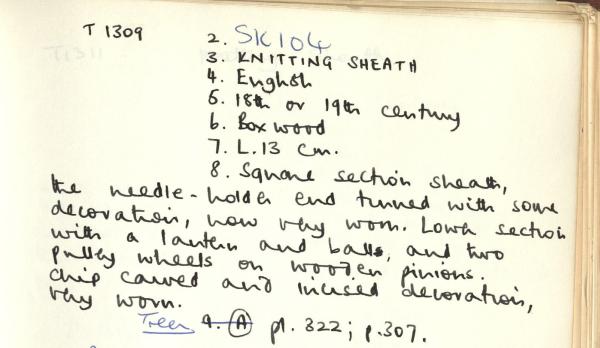 T 1309
2. SK104
3. KNITTING SHEATH
4. English
5. 18th or 19th century
6. Boxwood
7. L. 13 cm.
8. Square section sheath,
the needle-holder end turned with some
decoration, now very worn. Lower section
with a lantern and balls, and two
pulley wheels on wooden pinions.
Chip carved and incised decoration,
very worn.
Treen 9. A pl. 322; p. 307.